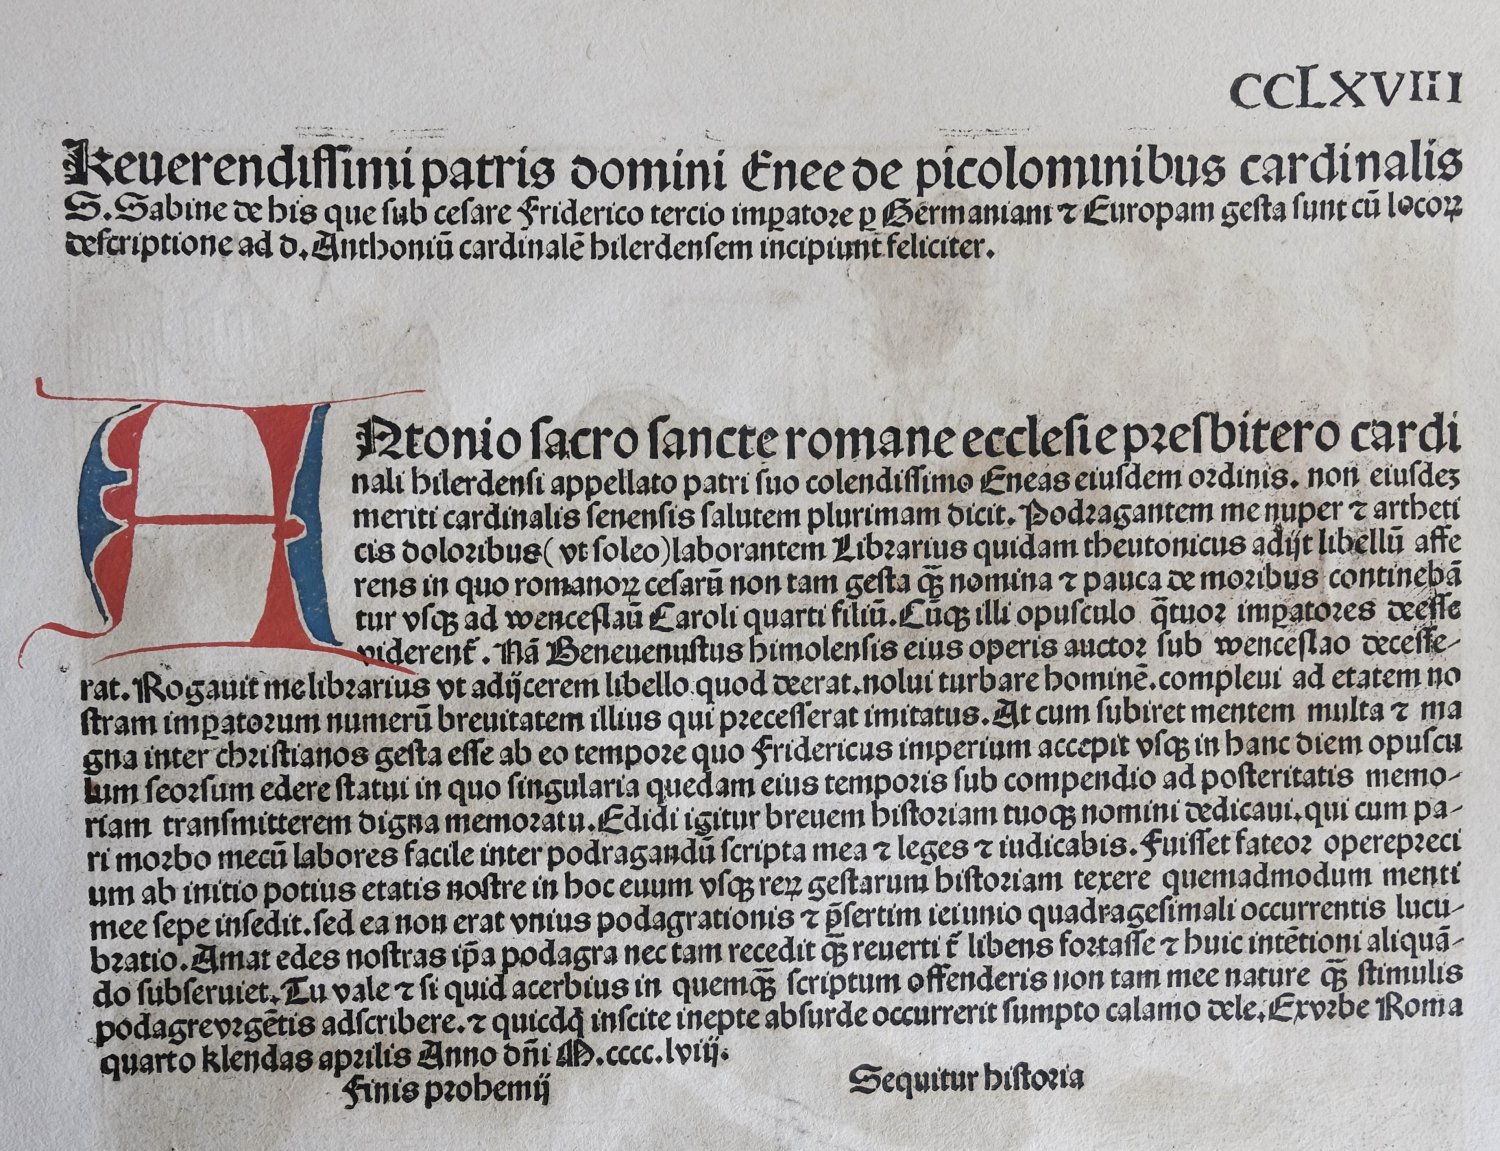 CCLXVIII
Reuerendissimi patris domini Enee de picolominibus cardinalis
S. Sabine de his que sub cesare Friderico tercio imꝑatore ꝑ Germaniam ⁊ Europam gesta sunt cū locoꝝ
descriptione ad d. Anthoniū cardinalē hilerdensem incipiunt feliciter.
ANtonio sacro sancte romane ecclesie presbitero cardi
nali hilerdensi appellato patri suo colendissimo Eneas eiusdem ordinis. non eiusdeꝫ
meriti cardinalis senensis salutem plurimam dicit. Podragantem me nuper ⁊ artheti
cis doloribus (vt soleo) laborantem Librarius quidam theutonicus adijt libellū affe
rens in quo romanoꝝ cesarū non tam gesta qꝫ̄ nomina ⁊ pauca de moribus continebā
tur vsqꝫ ad wenceslaū Caroli quarti filiū. Cūqꝫ illi opusculo q̄tuor imꝑatores deesse
viderent̄. Nā Beneuenustus himolensis eius operis auctor sub wenceslao decesse-
rat. Rogauit me librarius vt adijcerem libello quod deerat. nolui turbare hominē. compleui ad etatem no
stram imꝑatorum numerū breuitatem illius qui precesserat imitatus. At cum subiret mentem multa ⁊ ma
gna inter christianos gesta esse ab eo tempore quo Fridericus imperium accepit vsqꝫ in hanc diem opuscu
lum seorsum edere statui in quo singularia quedam eius temporis sub compendio ad posteritatis memo-
riam transmitterem digna memoratu. Edidi igitur breuem historiam tuoqꝫ nomini dedicaui. qui cum pa-
ri morbo mecū labores facile inter podragandū scripta mea ⁊ leges ⁊ iudicabis. Fuisset fateor operepreci
um ab initio potius etatis nostre in hoc euum vsqꝫ reꝝ gestarum historiam texere quemadmodum menti
mee sepe insedit. sed ea non erat vnius podagrationis ⁊ p̄sertim ieiunio quadragesimali occurrentis lucu-
bratio. Amat edes nostras ip̄a podagra nec tam recedit qꝫ̄ reuerti t̄ libens fortasse ⁊ huic intētioni aliquā-
do subseruiet. Tu vale ⁊ si quid acerbius in quemqꝫ̄ scriptum offenderis non tam mee nature qꝫ̄ stimulis
podagre vrgētis adscribere. ⁊ quicdq̄ inscite inepte absurde occurrerit sumpto calamo dele. Ex vrbe Roma
quarto klendas aprilis Anno dn̄i M.cccc.lviij.
Finis prohemij
Sequitur historia